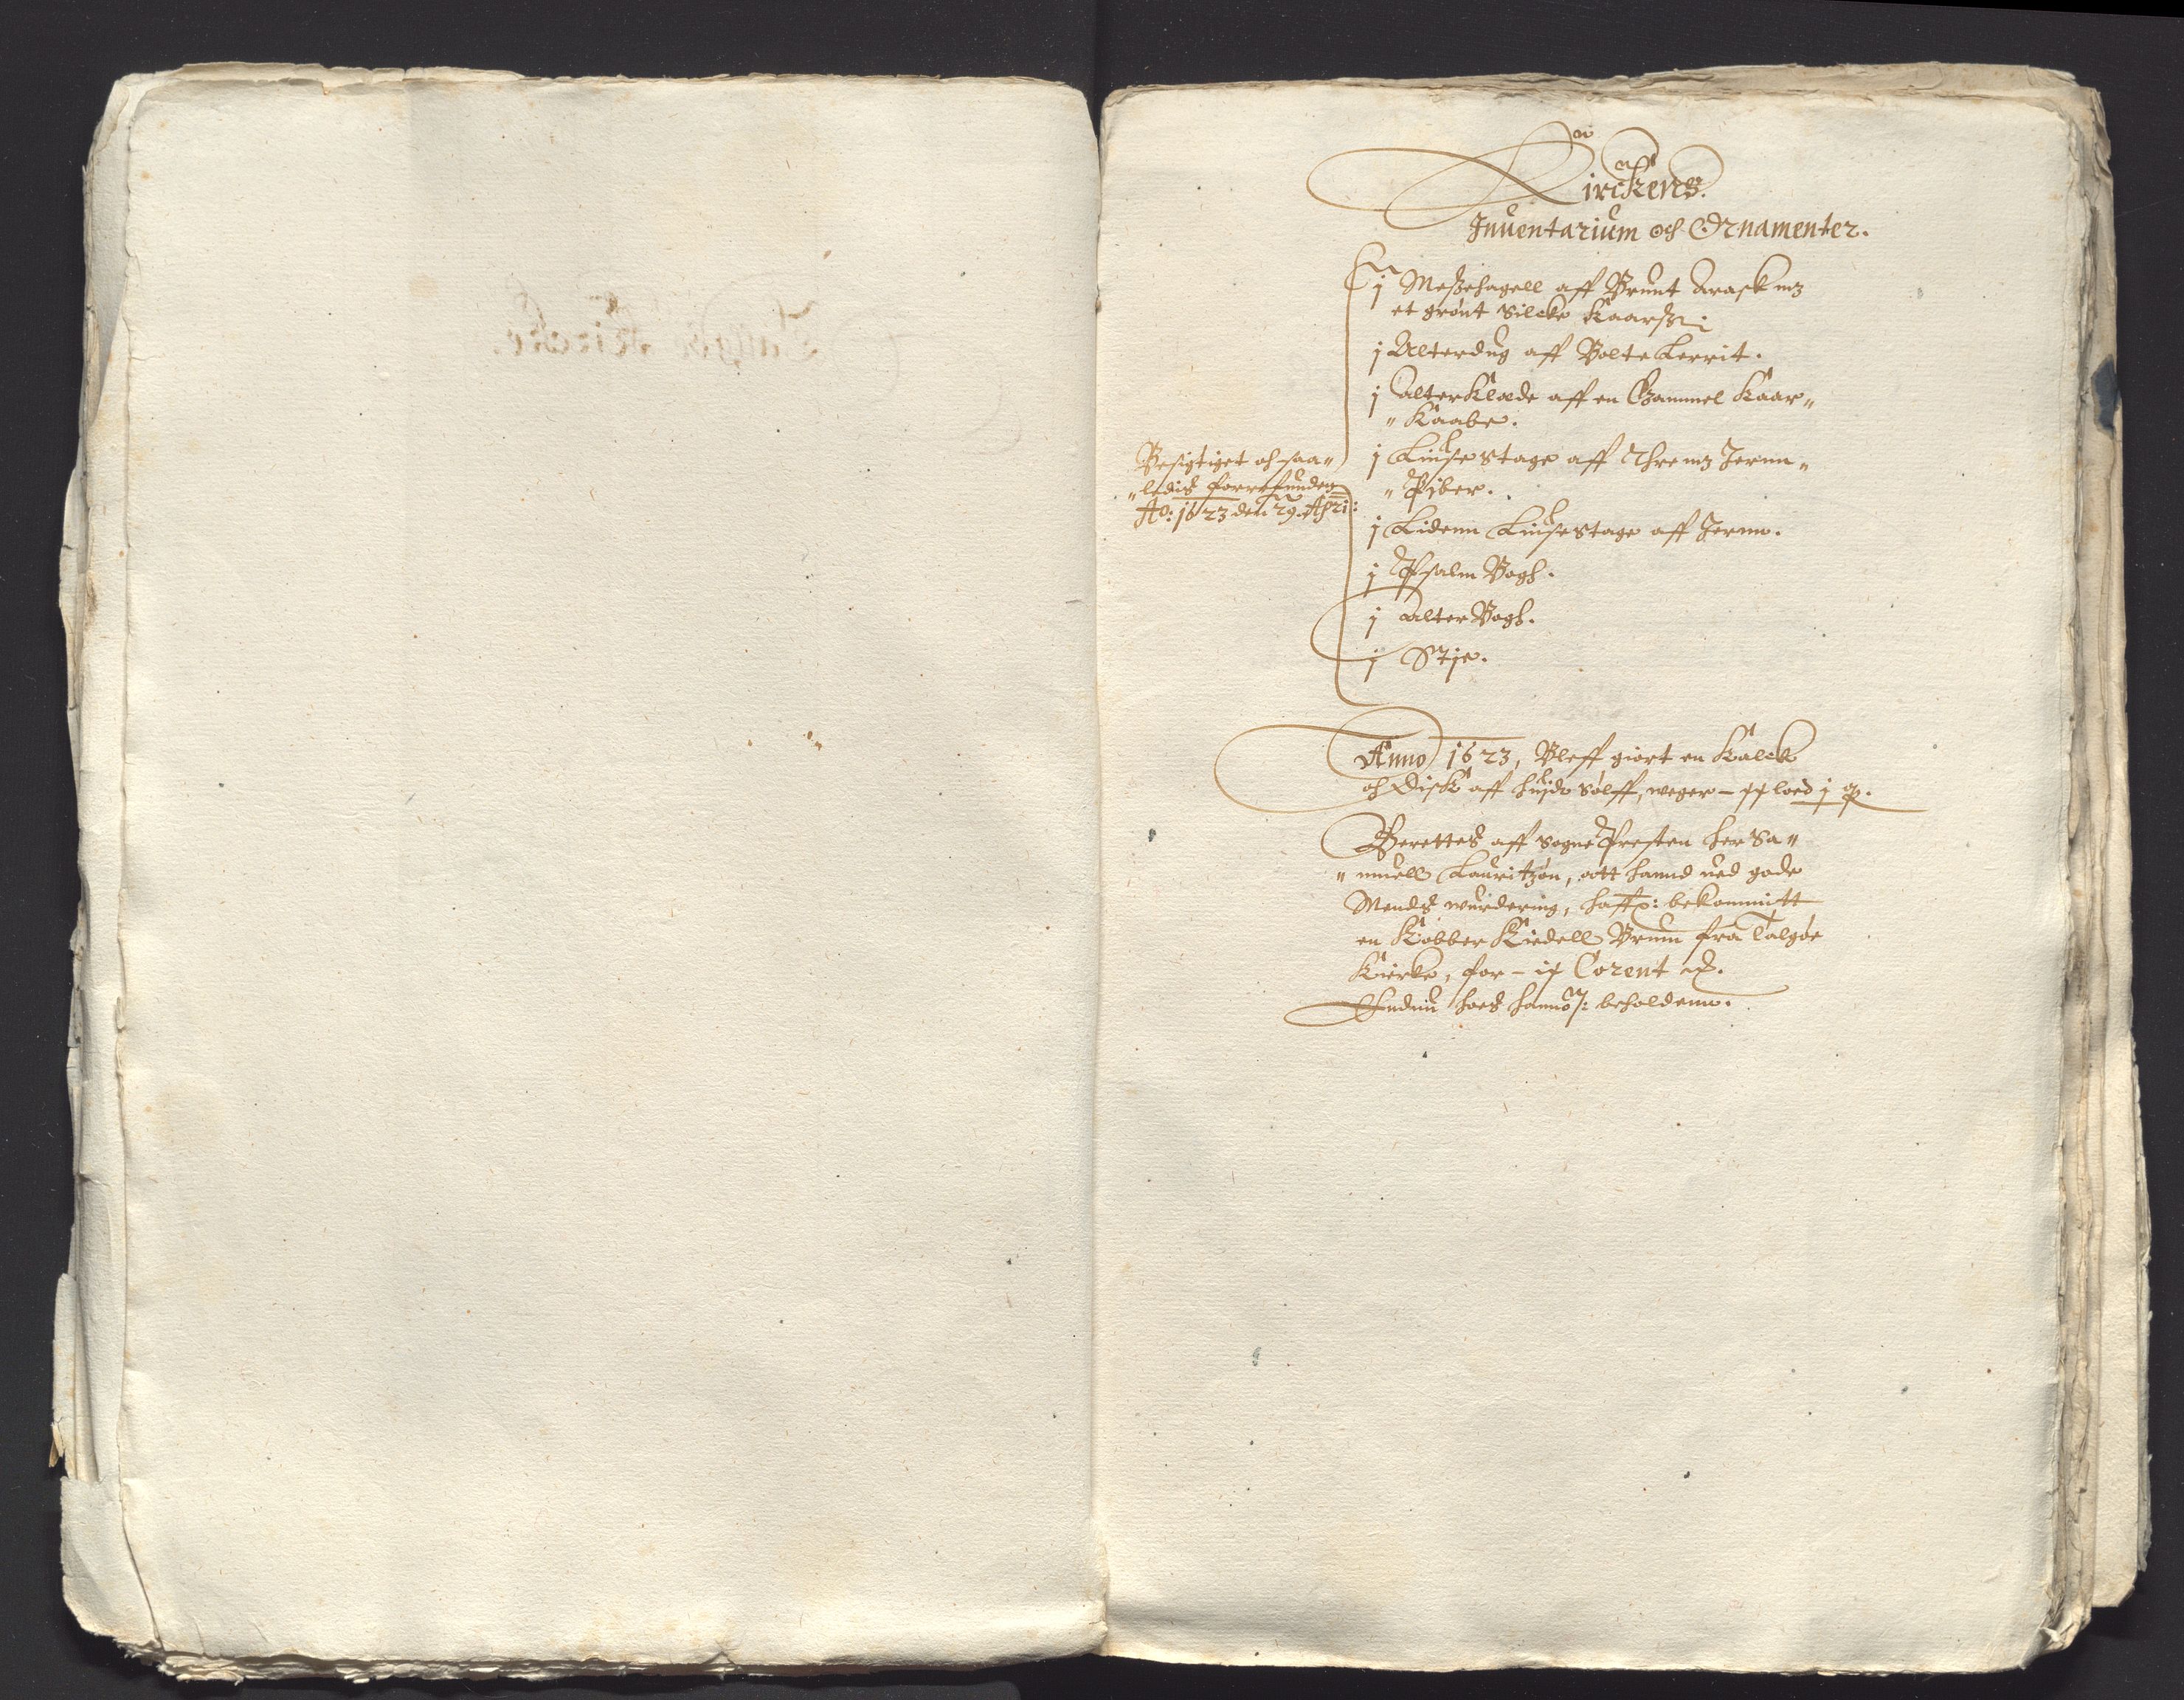 Kirckens
Inuentarium och Ornamenter.
j Messehagell aff Brunt Arask mz
et grønt Silcke Kaarss
j Alterdug aff Bolte Lerrit.
j alterKlæde aff en Gammel Kaar„
„ Kaabe.
j Liuse Stage aff Thre mz Jernn„
„ Piber.
j Lidenn Liuse Stage aff Jernn.
j Psalm Bogh.
j alter Bogh.
j Stje.
Besigtiget och saa„
„ledis forrefunden
Ao: 1623 den 29. Apri:
Anno 1623, Bleff giort en Kalck
och Disk aff huidt Sølff, weger – 44 lod j q.
Berettes aff SognePresten her Sa„
„ muell Lauritzøn, att hannd ued gode
Mends wurdering, haffr: bekommitt
en Kobber Kiedell Brun fra Talgøe
Kircke, for – 14 Corent d.
Endnu hoes hannom: beholdenn.
Talgøe Kircke.